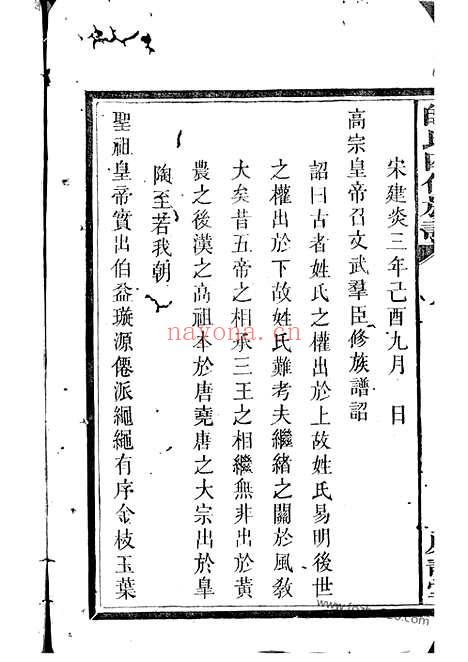 宋建炎三年己酉九月 日
高宗皇帝召文武羣臣修族譜詔
詔曰古者姓氏之權出於上故姓氏易明後世
之權出於下故姓氏難考夫繼緒之關於風敎
大矣昔五帝之相承三王之相繼無非出於黃
農之後漢之高祖本於唐堯唐之大宗出於皐
陶至若我朝
聖祖皇帝實出伯益璇源僊派繩繩有序金枝玉葉
nayona.cn